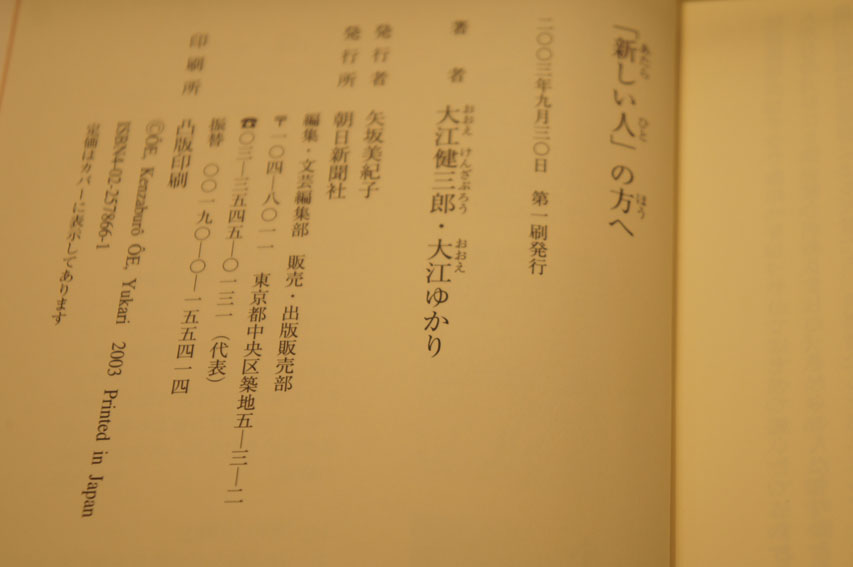 「新しい人」の方へ
二〇〇三年九月三〇日 第一刷発行
著者 大江健三郎・大江ゆかり
発行者 矢坂美紀子
発行所 朝日新聞社
編集・文芸編集部 販売・出版販売部
〒一〇四―八〇一一 東京都中央区築地五―三―二
☎〇三―三五四五―〇一三一(代表)
振替 〇〇一九〇―〇―一五五四一四
印刷所 凸版印刷
©ŌE, Kenzaburō ŌE, Yukari 2003 Printed in Japan
ISBN4-02-257866-1
定価はカバーに表示してあります